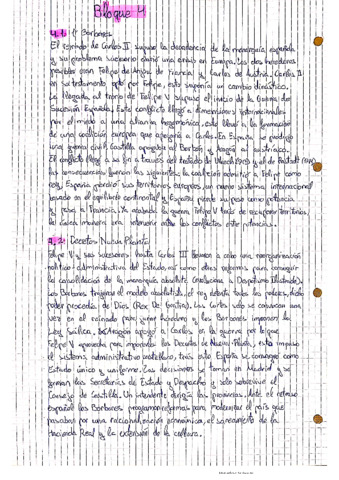 Bloque 4
4.1. 1os Borbones
El reinado de Carlos II supuso la decadencia de la monarquía española
y su problema sucesorio abrió una crisis en Europa. Los dos herederos
posibles eran Felipe de Anjou de Francia y Carlos de Austria. Carlos II
en su testamento optó por Felipe, esto suponía un cambio dinástico.
La llegada al trono de Felipe V supuso el inicio de la Guerra de
Sucesión Española. Este conflicto llegó a dimensiones internacionales
por el miedo a una alianza hegemónica, esto llevó a la formación
de una coalición europea que apoyaría a Carlos. En España se produjo
una guerra civil, Castilla apoyaba al Borbón y Aragón al austríaco.
El conflicto llegó a su fin a través del tratado de Utrech y el de Rastatt
las consecuencias fueron las siguientes: la coalición admitía a Felipe como
rey, España perdió sus territorios europeos, un nuevo sistema internacional
basado en el equilibrio continental y España pierde su peso como potencia
y pasa a Francia. Ya acabada la guerra Felipe V trató de recuperar territorios,
la única manera era intervenir entre los conflictos entre potencias.
4.2. Decretos Nueva Planta
Felipe V y sus sucesores hasta Carlos III llevaron a cabo una reorganización
político-administrativa del Estado, así como otras reformas para conseguir
la consolidación de la monarquía absoluta (Absolutismo a Despotismo Ilustrado).
Los Borbones trajeron el modelo absolutista: el rey detenta todos los poderes, dicho
poder procedía de Dios (Rex Dei Gratia). Las Cortes solo se convocan una
vez en el reinado para jurar heredero y los Borbones imponen la
Ley Sálica. Aragón apoyó a Carlos en la guerra por lo que
Felipe V aprovecha para imponerles los Decretos de Nueva Planta, esto impuso
el sistema administrativo castellano, tras esto España se consagró como
Estado único y uniforme. Las decisiones se toman en Madrid y se
forman las Secretarías de Estado y Despacho y solo sobrevive el
Consejo de Castilla. Un intendente dirigía las provincias. Ante el retraso
español los Borbones programaron reformas para modernizar el país que
pasaban por una racionalización económica, el saneamiento de la
Hacienda Real y la extensión de la cultura.